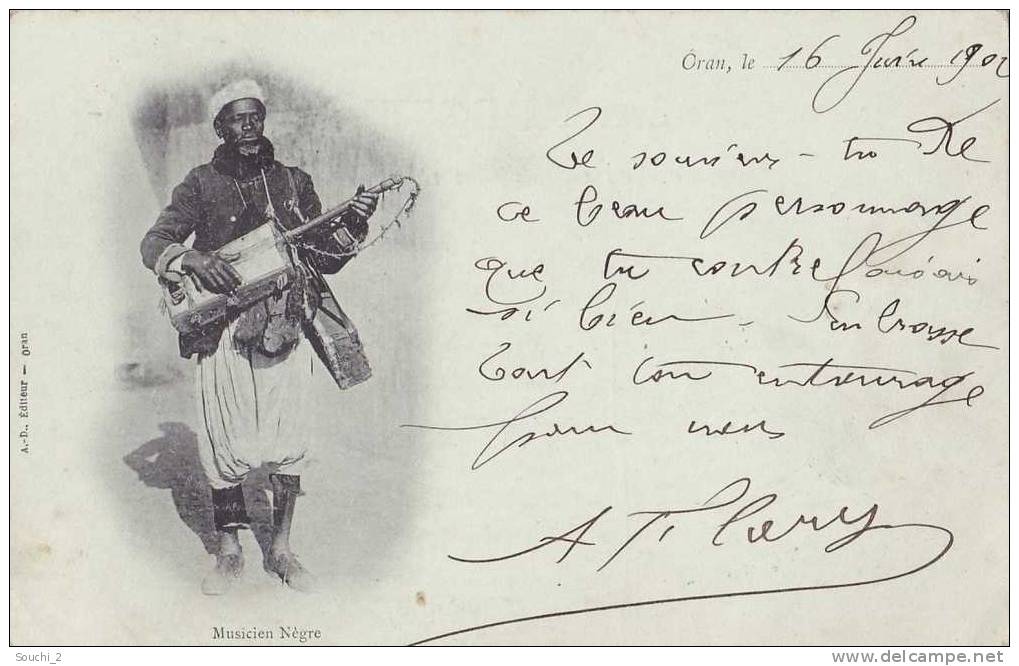 Oran, le 16 Juin 1902
Te souviens-tu de
ce beau personnage
que tu contrefaisais
si bien. Embrasse
tout ton entourage
pour nous
A
A.-D., Éditeur — Oran
Musicien Nègre
Souchi_2
www.delcampe.net